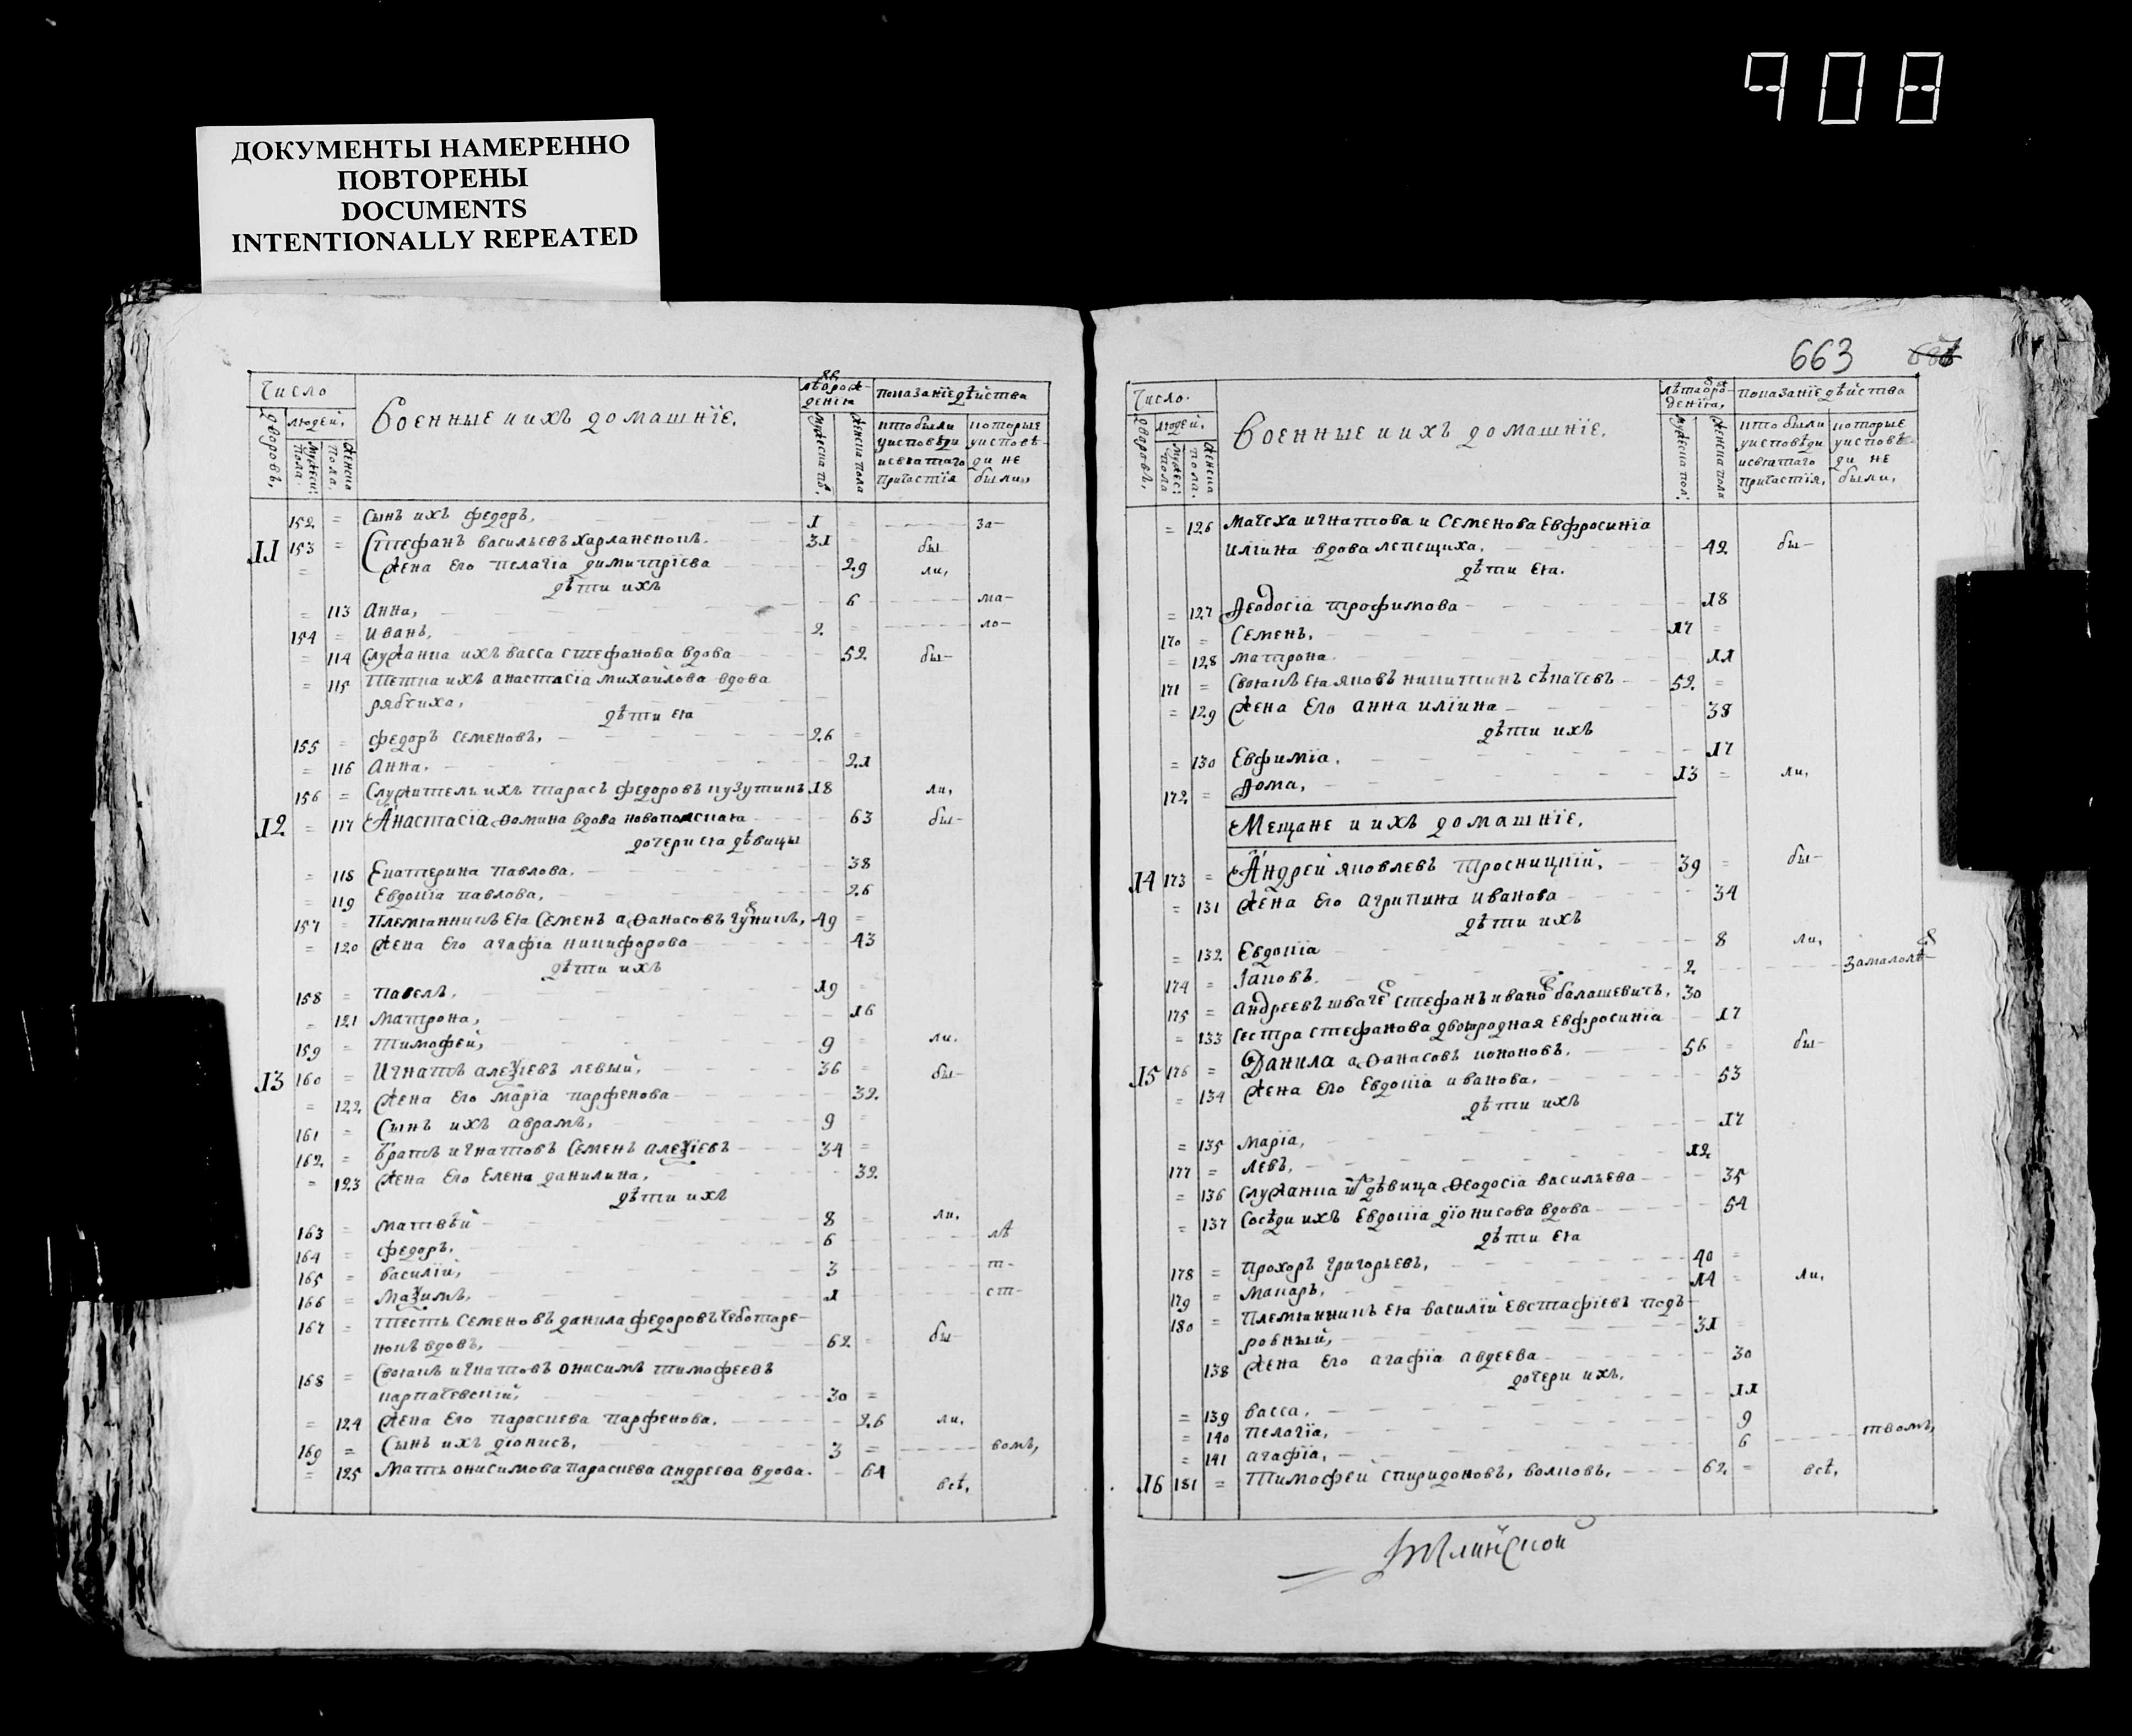 908
ДОКУМЕНТЫ НАМЕРЕННО
ПОВТОРЕНЫ
DOCUMENTS
INTENTIONALLY REPEATED
Число
дворовъ,
людей,
мужес: пола.
женска пола,
Военные ихъ домашнїе.
показанїе дѣйства
кто были у исповѣди и святаго причастїя
которые у исповѣди не были,
152 = Сынъ ихъ федоръ, 1 = за-
11 153 = Стефанъ васильевъ харланенокъ. 31 бы-
= жена его пелагїа димитрїева 29 ли,
дѣти ихъ
= 113 Анна, 6 ма-
154 = иванъ, 2 = ло-
= 114 Служанка ихъ васса стефанова вдова 52 бы-
= 115 тетка ихъ анастасїа михайлова вдова
рябчиха,
дѣти ея
155 = федоръ семеновъ, 26 =
= 116 Анна. 21
156 = Служитель ихъ тарасъ федоровъ кузутинъ 18 ли,
12 = 117 Анастасїа Ѳомина вдова новопаская 63 бы-
дочери ея дѣвицы
= 118 Екатерина павлова. 38
= 119 Евдокїа павлова, 26
157 = племянникъ ея Семенъ аѲанасовъ 49 =
= 120 жена его агафїа никифорова 43
дѣти ихъ
158 = павелъ, 19 =
= 121 матрона, 16
159 = тимофей, 9 = ли.
13 160 = Игнатъ алеѯїевъ левый, 36 = бы-
= 122 жена его марїа парфенова 32
161 = Сынъ ихъ аврамъ, 9 =
162 = братъ игнатовъ Семенъ алеѯїевъ 34 =
= 123 жена его елена данилина, 32
дѣти ихъ
163 = матвѣй 8 ли,
164 = федоръ, 6 лѣ
165 = василїй, 3 т-
166 = маѯимъ, 1 ст-
167 = тесть семеновъ данила федоровъ чеботаре-
нокъ вдовъ, 62 = бы-
168 = Своякъ игнатовъ онисимъ тимофеевъ
карпачевскїй, 30 =
= 124 жена его параскева парфенова. 26 ли,
169 = Сынъ ихъ дїонисъ, 3 = вомъ,
= 125 мать онисимова параскева андреева вдова. 64 всѣ,
663
Число.
дворовъ,
людей,
мужес: пола
женска пола.
Военные и ихъ домашнїе.
показанїе дѣйства
кто были у исповѣди и святаго причастїя,
которые у исповѣди не были,
= 126 мачеха игнатова и семенова евфросинїа
илїина вдова лепещиха, 42 бы-
дѣти ея.
= 127 Ѳеодосїа трофимова 18
170 = Семенъ, 17 =
= 128 матрона 11
171 = своякъ ея яковъ никитинъ сѣпачевъ 52 =
= 129 жена его анна илїина 38
дѣти ихъ
= 130 Евфимїа, 17
172 = Ѳома, 13 = ли,
Мещане и ихъ домашнїе,
14 173 = Андрей яковлевъ тросницкїй, 39 = бы-
= 131 жена его агрипина иванова 34
дѣти ихъ
= 132 Евдокїа 8 ли,
174 = Їаковъ 2 замалолѣ-
175 = андреевъ стефанъ иванов балашевичъ, 30
= 133 Сестра стефанова двоюродная евфросинїа 17
15 176 = Данила аѲанасовъ кононовъ. 56 = бы-
= 134 жена его Евдокїа иванова, 53
дѣти ихъ
= 135 марїа, 17
177 = левъ, 12
= 136 служанка дѣвица Ѳеодосїа васильева 35
= 137 Сосѣди ихъ Евдокїа дїонисова вдова 54
дѣти ея
178 = прохоръ григорьевъ, 40 =
179 = макаръ, 14 = ли,
180 = племянникъ ея василїй евстафїевъ
31 =
138 жена его агафїа авдеева 30
дочери ихъ,
= 139 васса, 11
= 140 пелагїа, 9
= 141 агафїа, 6 твомъ,
16 181 = тимофей спиридоновъ, волковъ, 62 = всѣ,